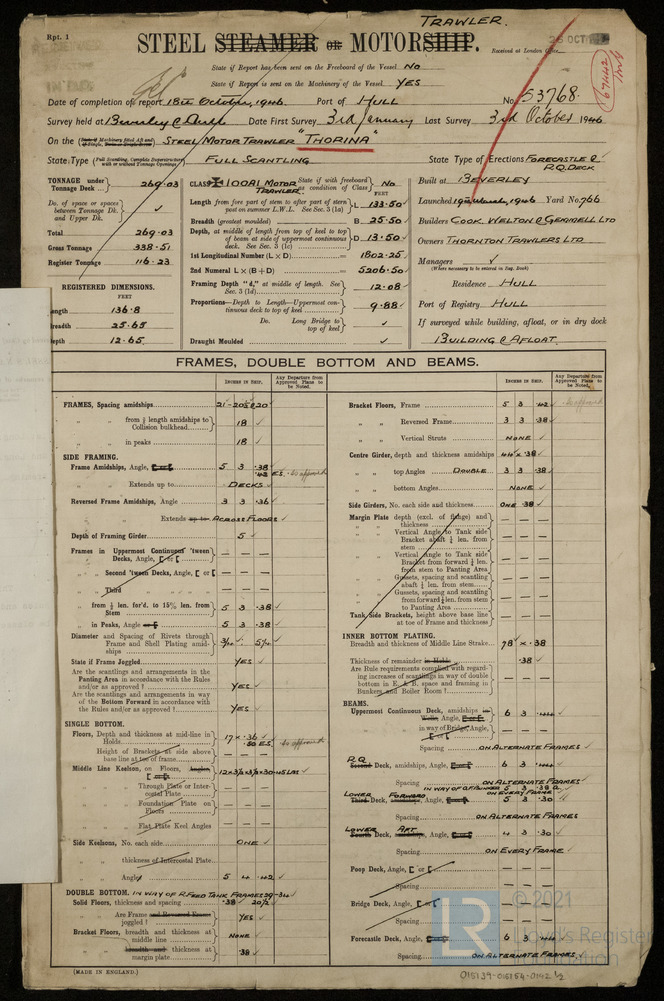 TRAWLER.
Rpt. 1
STEEL STEAMER OR MOTORSHIP.
Received at London Office
26 OCT
State if Report has been sent on the Freeboard of the Vessel No
State if Report is sent on the Machinery of the Vessel YES
Date of completion of report 18th October, 1946. Port of HULL No. 53768.
Survey held at Beverley & Hull Date First Survey 3rd January Last Survey 3rd October 1946
On the STEEL MOTOR TRAWLER "THORINA"
State Type FULL SCANTLING State Type of Erections FORECASTLE & R.Q. DECK
(Full Scantling, Complete Superstructure with or without Tonnage Openings)
TONNAGE under Tonnage Deck ... 269.03
Do. of space or spaces between Tonnage Dk. and Upper Dk. ✓
Total 269.03
Gross Tonnage 338.51
Register Tonnage 116.23
REGISTERED DIMENSIONS.
FEET
Length 136.8
Breadth 25.65
Depth 12.65
CLASS ✠100A1 MOTOR TRAWLER State if with freeboard as condition of Class No
FEET
Length from fore part of stem to after part of stern post on summer L.W.L. See Sec. 3 (1a) L 133.50
Breadth (greatest moulded) B 25.50
Depth, at middle of length from top of keel to top of beam at side of uppermost continuous deck. See Sec. 3 (1c) D 13.50
1st Longitudinal Number (L × D) 1802.25
2nd Numeral L × (B + D) 5206.50
Framing Depth "d," at middle of length. See Sec. 3 (1d) 12.08
Proportions—Depth to Length—Uppermost continuous deck to top of keel 9.88
Do. Long Bridge to top of keel ✓
Draught Moulded ✓
Built at BEVERLEY
Launched 19th March, 1946 Yard No. 766
Builders COOK, WELTON & GEMMELL LTD
Owners THORNTON TRAWLERS LTD
Managers ✓
(Where necessary to be entered in Reg. Book)
Residence HULL
Port of Registry HULL
If surveyed while building, afloat, or in dry dock
BUILDING & AFLOAT.
FRAMES, DOUBLE BOTTOM AND BEAMS.
INCHES IN SHIP. Any Departure from Approved Plans to be Noted.
FRAMES, Spacing amidships 21-20½ & 20
" " from ⅕ length amidships to Collision bulkhead 18 ✓
" " in peaks 18 ✓
SIDE FRAMING.
Frame Amidships, Angle, 5 3 .38
.43 E.S. as approved
" " Extends up to DECKS ✓
Reversed Frame Amidships, Angle 3 3 .36 ✓
" " Extends up to ACROSS FLOORS ✓
Depth of Framing Girder 5 ✓
Frames in Uppermost Continuous 'tween Decks, Angle, [ or [ — — —
" " Second 'tween Decks, Angle, [ or [ — — —
" " Third " " " " — — —
" " from ⅕ len. for'd. to 15% len. from Stem 5 3 .38
" " in Peaks, Angle 5 3 .38
Diameter and Spacing of Rivets through Frame and Shell Plating amidships ¾ 5¼
State if Frame Joggled YES
Are the scantlings and arrangements in the Panting Area in accordance with the Rules and/or as approved? YES
Are the scantlings and arrangements in way of the Bottom Forward in accordance with the Rules and/or approved? YES
SINGLE BOTTOM.
Floors, Depth and thickness at mid-line in Holds 17 × .36
.50 E.S. as approved
Height of Brackets at side above base line at toe of frame — — —
Middle Line Keelson, on Floors, Angles,
" " Through Plate or Intercostal Plate — — —
" " Foundation Plate on Floors — — —
" " Flat Plate Keel Angles — — —
Side Keelsons, No. each side ONE ✓
" " thickness of Intercostal Plate — — —
" " Angle 5 4 .42
DOUBLE BOTTOM. IN WAY OF R. FEED TANK FRAMES 29-34
Solid Floors, thickness and spacing .38 20½
" " Are Frame and Reversed Frame joggled? YES
Bracket Floors, breadth and thickness at middle line NONE
" " breadth and thickness at margin plate .38
(MADE IN ENGLAND.)
INCHES IN SHIP. Any Departure from Approved Plans to be Noted.
Bracket Floors, Frame 5 3 .42 as approved
" " Reversed Frame 3 3 .38
" " Vertical Struts NONE
Centre Girder, depth and thickness amidships 44 × .38
" " top Angles DOUBLE 3 3 .38
" " bottom Angles NONE
Side Girders, No. each side and thickness ONE .38
Margin Plate depth (excl. of flange) and thickness — — —
" " Vertical Angle to Tank side Bracket abaft ¼ len. from stem — — —
" " Vertical Angle to Tank side Bracket from forward ¼ len. from stem to Panting Area — — —
" " Gussets, spacing and scantling abaft ¼ len. from stem — — —
" " Gussets, spacing and scantling from forward ¼ len. from stem to Panting Area — — —
Tank Side Brackets, height above base line at toe of Frame and thickness — — —
INNER BOTTOM PLATING.
Breadth and thickness of Middle Line Strake 78 × .38
Thickness of remainder in Holds .38 ✓
Are Rule requirements complied with regarding increases of scantlings in way of double bottom in E. & B. space and framing in Bunkers and Boiler Room?
BEAMS.
Uppermost Continuous Deck, amidships in Wells, Angle, 6 3 .44
" " in way of Bridge, Angle, [ or [ — — —
Spacing ON ALTERNATE FRAMES
R.Q.
Second Deck, amidships, Angle, 6 3 .44
Spacing ON ALTERNATE FRAMES
LOWER FORWARD
Third Deck, amidships, Angle, 5 3 .30
ON EVERY FRAME
Spacing ON ALTERNATE FRAMES
LOWER AFT
Fourth Deck, amidships, Angle, 4 3 .30
Spacing ON EVERY FRAME
Poop Deck, Angle, [ or [ — — —
Spacing
Bridge Deck, Angle, [ or [ — — —
Spacing
Forecastle Deck, Angle, 6 3 .44
Spacing ON ALTERNATE FRAMES
LR
© 2021
Lloyd's Register
Foundation